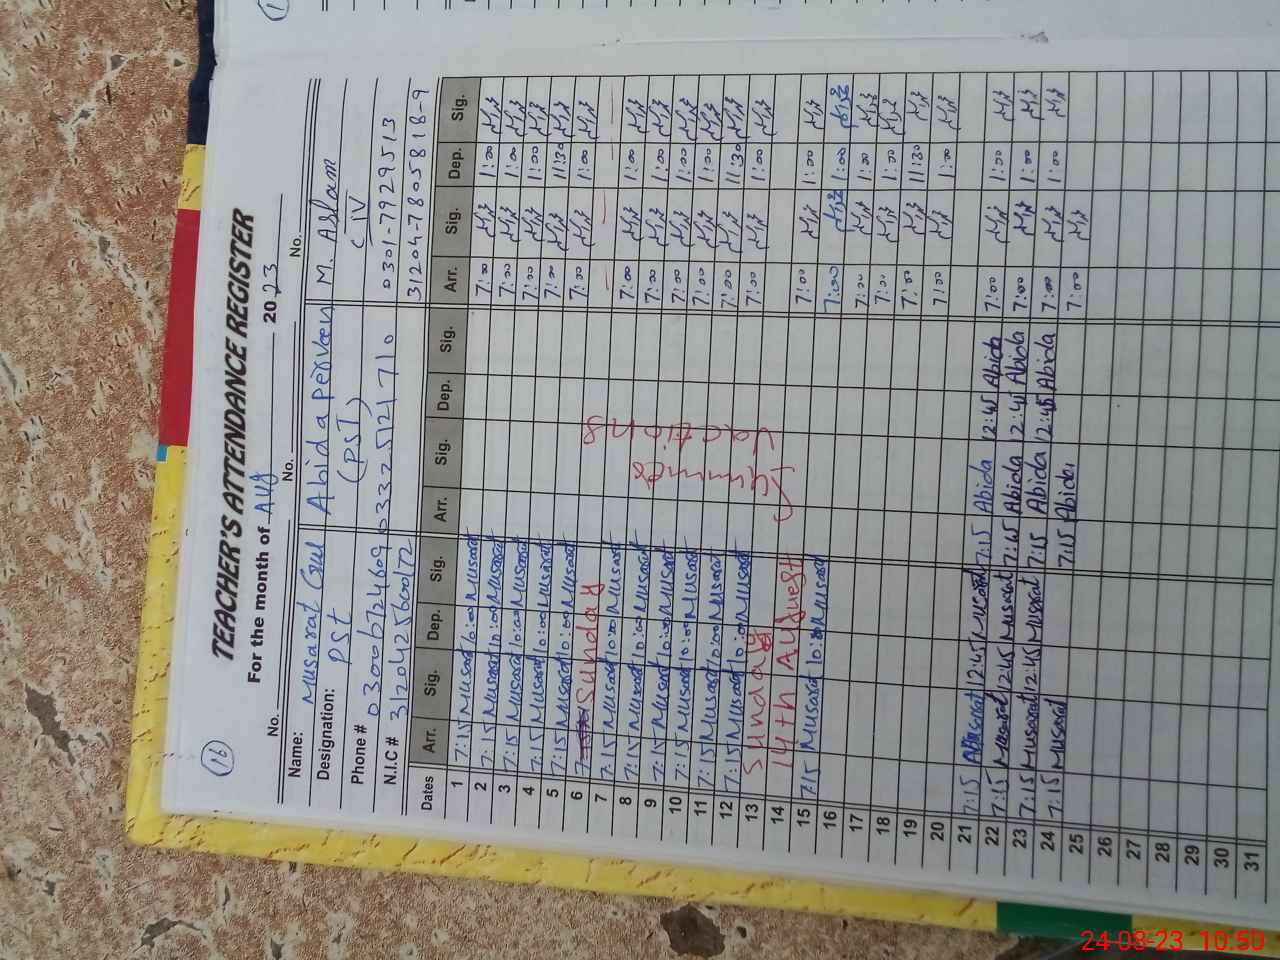 16
TEACHER'S ATTENDANCE REGISTER
For the month of Aug 2023
No. No. No.
Name: Musarat Gul Abida Perveen M. Aslam
Designation: PST (PST) (IV
Phone # 03006724609 03335121710 0301-7929513
N.I.C # 3120425600072 31204-7805818-9
Dates Arr. Sig. Dep. Sig. Arr. Sig. Dep. Sig. Arr. Sig. Dep. Sig.
1 7:15 Musarat 10:00 Musarat 7:00 1:00
2 7:15 Musarat 10:00 Musarat 7:00 1:00
3 7:15 Musarat 10:00 Musarat 7:00 1:00
4 7:15 Musarat 10:00 Musarat 7:00 11:30
5 7:15 Musarat 10:00 Musarat 7:00 1:00
6 Sunday
7 7:15 Musarat 10:00 Musarat 7:00 1:00
8 7:15 Musarat 10:00 Musarat 7:00 1:00
9 7:15 Musarat 10:00 Musarat 7:00 1:00
10 7:15 Musarat 10:00 Musarat 7:00 1:00
11 7:15 Musarat 10:00 Musarat 7:00 11:30
12 7:15 Musarat 10:00 Musarat 7:00 1:00
13 Sunday
14 14th August
15 7:15 Musarat 10:00 Musarat 7:00 1:00
16 7:00 1:00
17 7:00 1:00
18 7:00 1:00
19 7:00 11:30
20 7:00 1:00
21 7:15 Musarat 12:45 Musarat 7:15 Abida 12:45 Abida 7:00 1:00
22 7:15 Musarat 12:45 Musarat 7:15 Abida 12:45 Abida 7:00 1:00
23 7:15 Musarat 12:45 Musarat 7:15 Abida 12:45 Abida 7:00 1:00
24 7:15 Musarat 7:15 Abida 7:00
25
26
27
28
29
30
31
Summer
Vacations
24-08-23 10:50